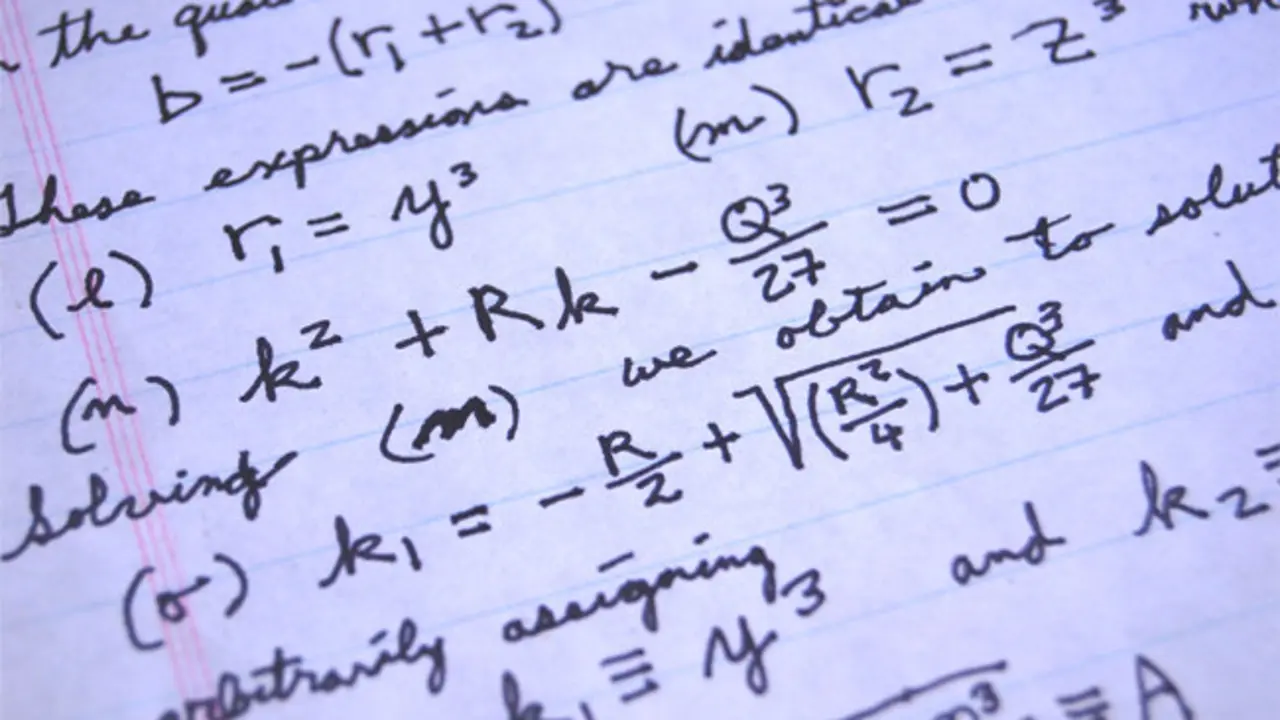 the
b = -(r₁ + r₂)
These expressions are identical
(l) r₁ = y³ (m) r₂ = z³
(n) k² + Rk - Q³/27 = 0
Solving (m) we obtain to
(o) k₁ = - R/2 + √(R²/4) + Q³/27 and
arbitrarily assigning and k₂ =
k₁ ≡ y³
≡ A